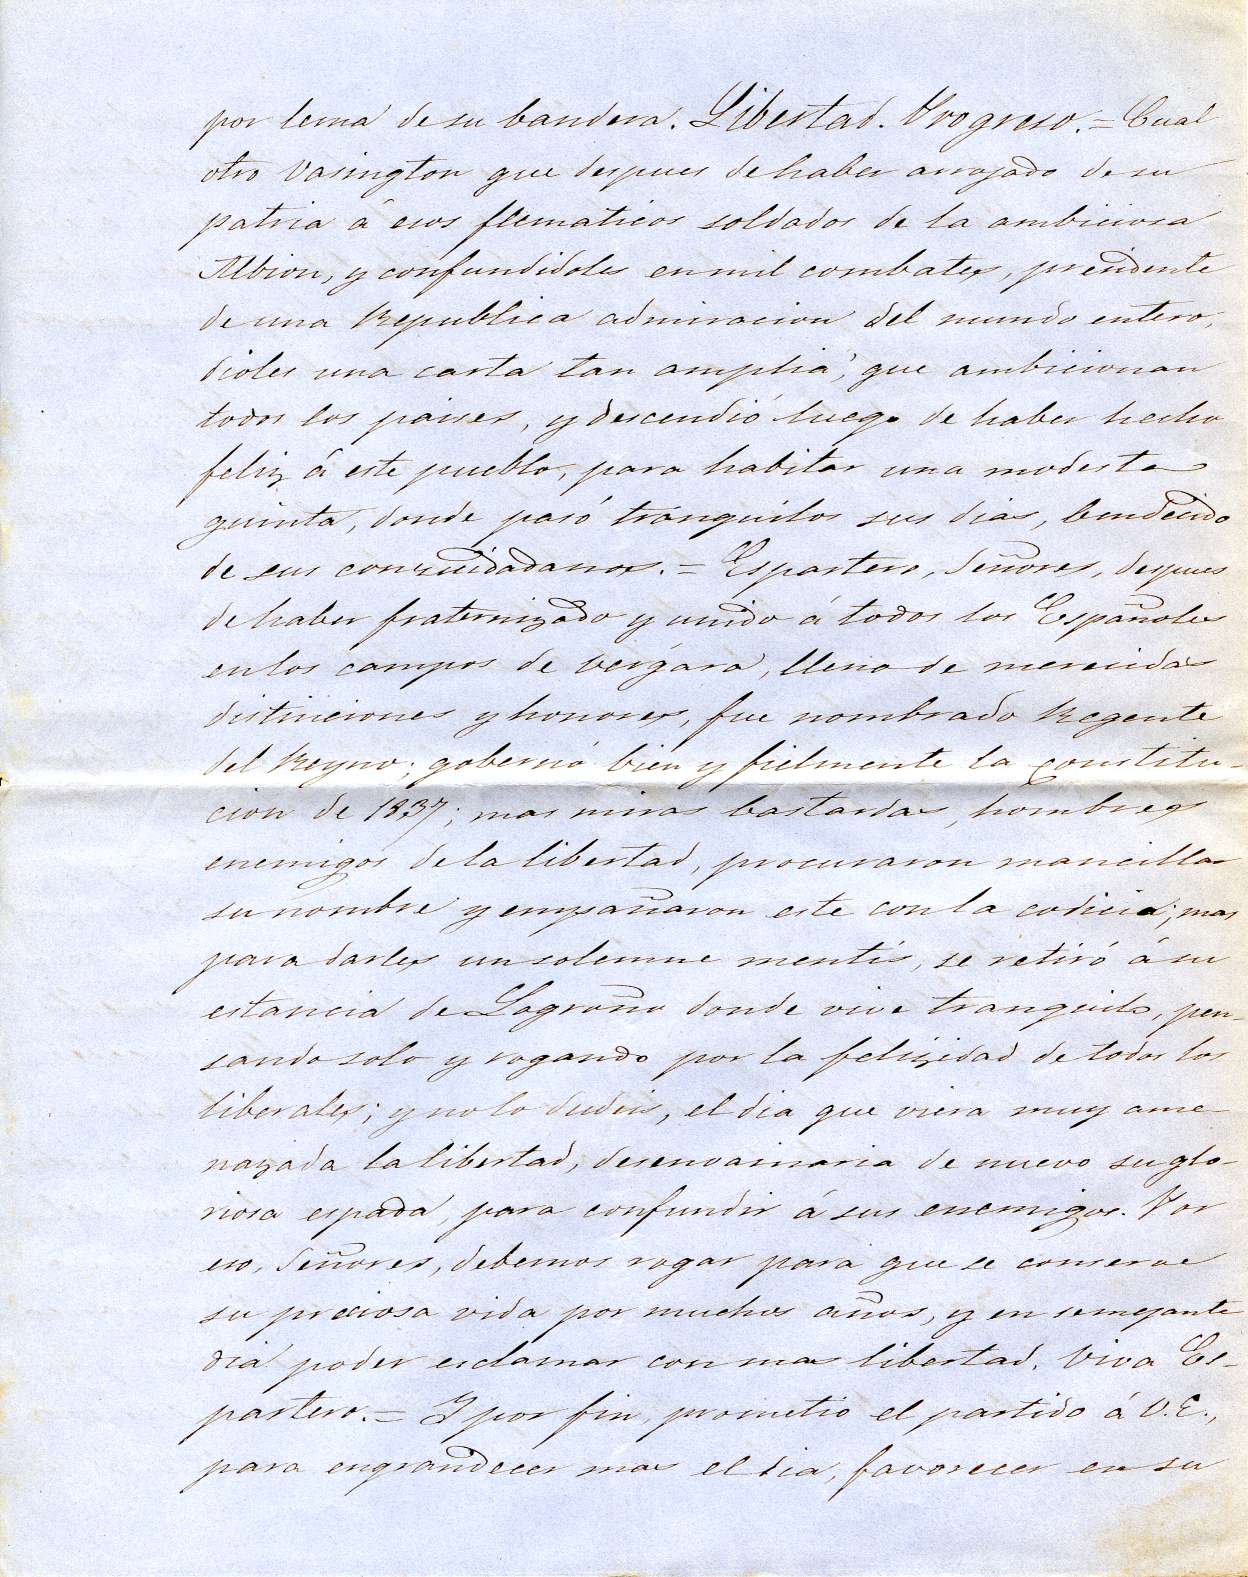 por lema de su bandera. Libertad. Progreso. = Cual
otro Vasington que despues de haber arrojado de su
patria á esos flematicos soldados de la ambiciosa
Albion, y confundidoles en mil combates, presidente
de una Republica admiracion del mundo entero,
dioles una carta tan amplia, que ambicionan
todos los paises, y descendió luego de haber hecho
feliz á este pueblo, para habitar una modesta
quinta, donde pasó tranquilos sus dias, bendecido
de sus conciudadanos. = Espartero, Señores, despues
de haber fraternizado y unido á todos los Españoles
en los campos de Vergara, lleno de merecidas
distinciones y honores, fue nombrado Regente
del Reyno; gobernó bien y fielmente la constitu-
cion de 1837; mas miras bastardas, hombres
enemigos de la libertad, procuraron mancillar
su nombre y empañaron este con la codicia; mas
para darles un solemne mentís, se retiró á su
estancia de Logroño donde vive tranquilo, pen-
sando solo y rogando por la felizidad de todos los
liberales; y no lo dudeis, el dia que viera muy ame-
nazada la libertad, desenvainaria de nuevo su glo-
riosa espada, para confundir á sus enemigos. Por
eso, Señores, debemos rogar para que se conserve
su preciosa vida por muchos años, y en semejante
dia poder esclamar con mas libertad. Viva Es-
partero. = Y por fin, prometio el partido á V.E.,
para engrandecer mas el dia, favorecer en su